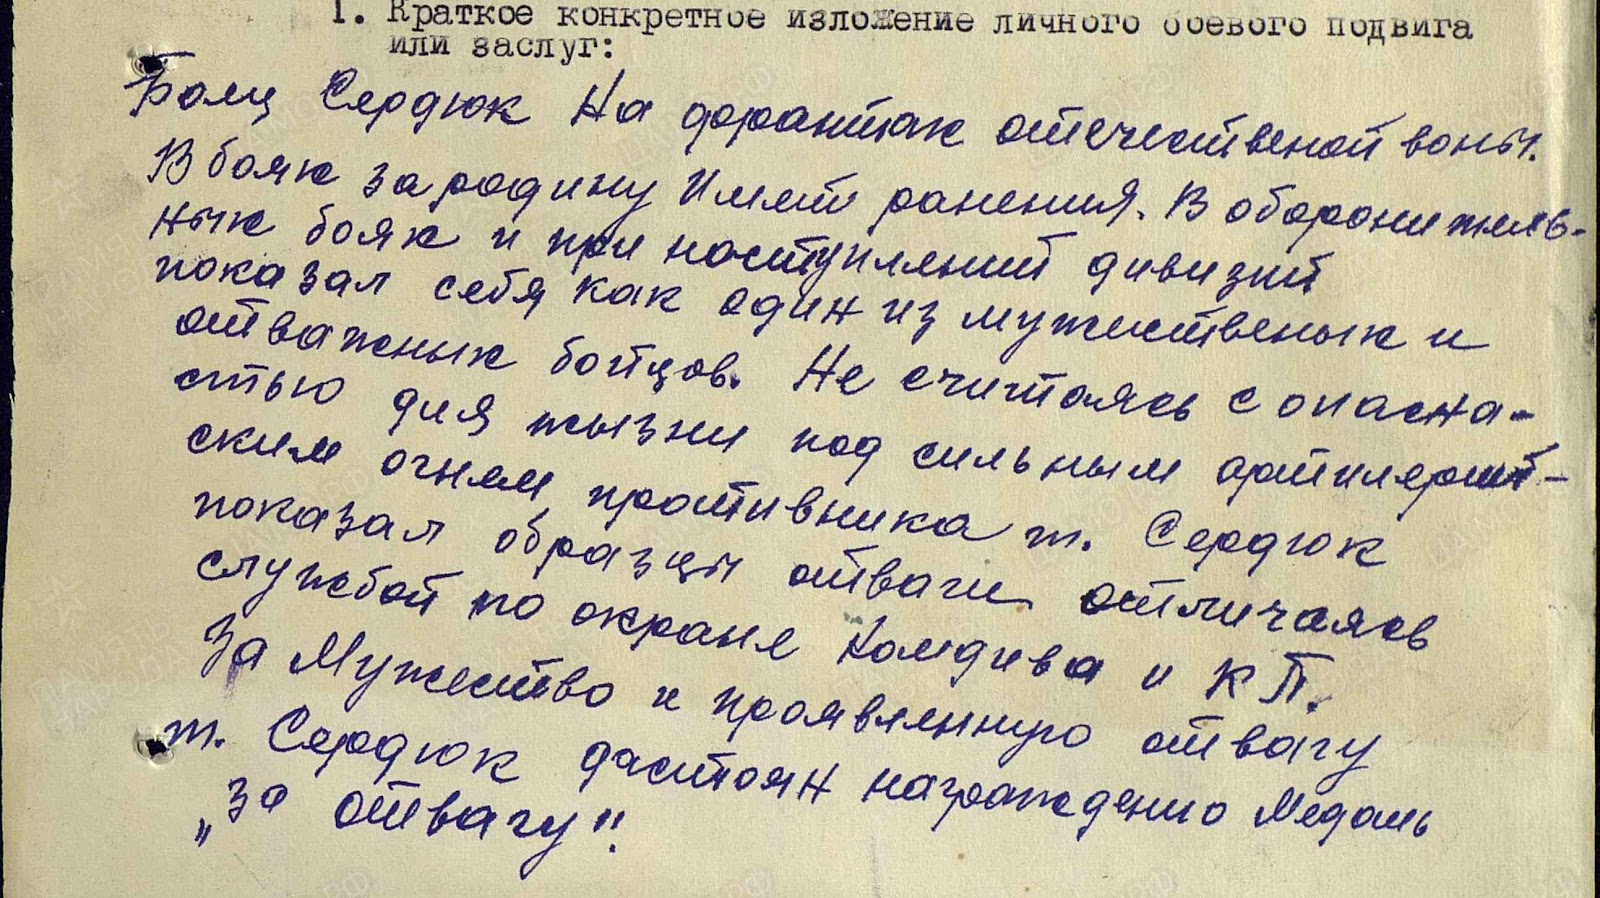 1. Краткое конкретное изложение личного боевого подвига
или заслуг:
Боец Сердюк На франтах отечественой воны.
В боях за родину Имеет ранения. В оборонитель-
ных боях и при наступлений дивизий
показал себя как один из мужественых и
отважных бойцов. Не считаясь с опасна-
стью для жызни под сильным артилерий-
ским огнем противника т. Сердюк
показал образцы отваги отличаясь
службой по охране Комдива и КП.
За Мужество и проявленную отвагу
т. Сердюк дастоян награждению Медаль
„за отвагу".